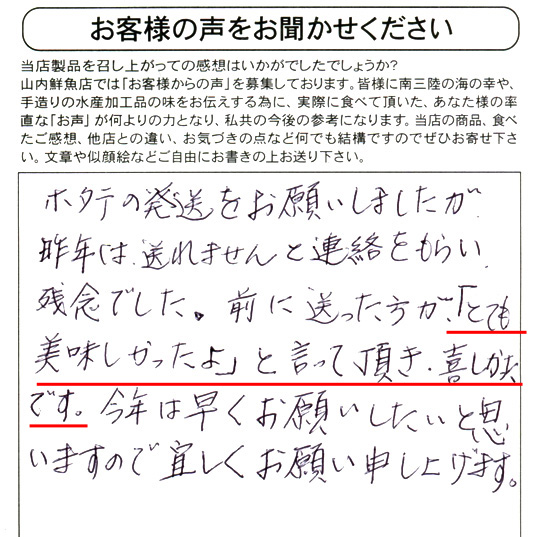 お客様の声をお聞かせください
当店製品を召し上がっての感想はいかがでしたでしょうか?
山内鮮魚店では「お客様からの声」を募集しております。皆様に南三陸の海の幸や、
手造りの水産加工品の味をお伝えする為に、実際に食べて頂いた、あなた様の率
直な「お声」が何よりの力となり、私共の今後の参考になります。当店の商品、食べ
たご感想、他店との違い、お気づきの点など何でも結構ですのでぜひお寄せ下さ
い。文章や似顔絵などご自由にお書きの上お送り下さい。
ホタテの発送をお願いしましたが
昨年は送れませんと連絡をもらい
残念でした。前に送った方が、「とても
美味しかったよ」と言って頂き、喜しかた
です。今年は早くお願いしたいと思
いますので宜しくお願い申し上げます。